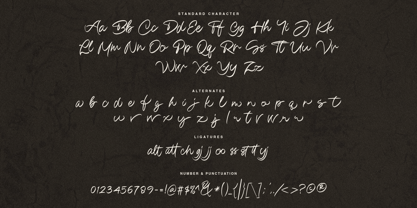 STANDARD CHARACTER
Aa Bb Cc Dd Ee Ff Gg Hh Ii Jj Kk
Ll Mm Nn Oo Pp Qq Rr Ss Tt Uu Vv
Ww Xx Yy Zz
ALTERNATES
a b c d e f g h i j k l m n o p q r s t
u v w x y z
LIGATURES
alt att ch gj jj oo ss st tt yj
NUMBER & PUNCTUATION
0123456789